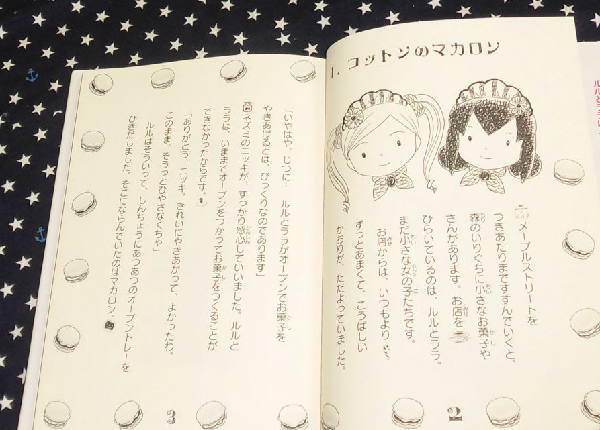 1. コットンのマカロン
メープルストリートを
つきあたりまですすんでいくと、
森のいりぐちに小さなお菓子や
さんがあります。お店を
ひらいているのは、ルルとララ。
まだ小さな女の子たちです。
お店からは、いつもより
ずっとあまくて、こうばしい
かおりが、ただよっていました。
2
「いやはや、じつに、ルルとララがオーブンでお菓子を
やきあげるとは、びっくりなのであります」
ネズミのニッキが、すっかり感心していいました。ルルと
ララは、いままでオーブンをつかってお菓子をつくることが
できなかったからです。
「ありがとう、ニッキ。きれいにやきあがって、よかったわ。
このまま、そうっとひやさなくちゃ」
ルルはそういって、しんちょうにあつあつのオーブントレーを
ひきだしました。そこにならんでいたのはマカロン。
3